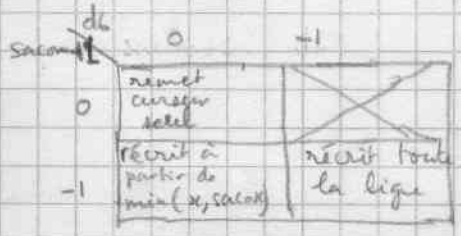 d6
0 -1
0
remet
curseur
seul
-1
récrit à
partir de
min(x, sacox)
récrit toute
la ligne